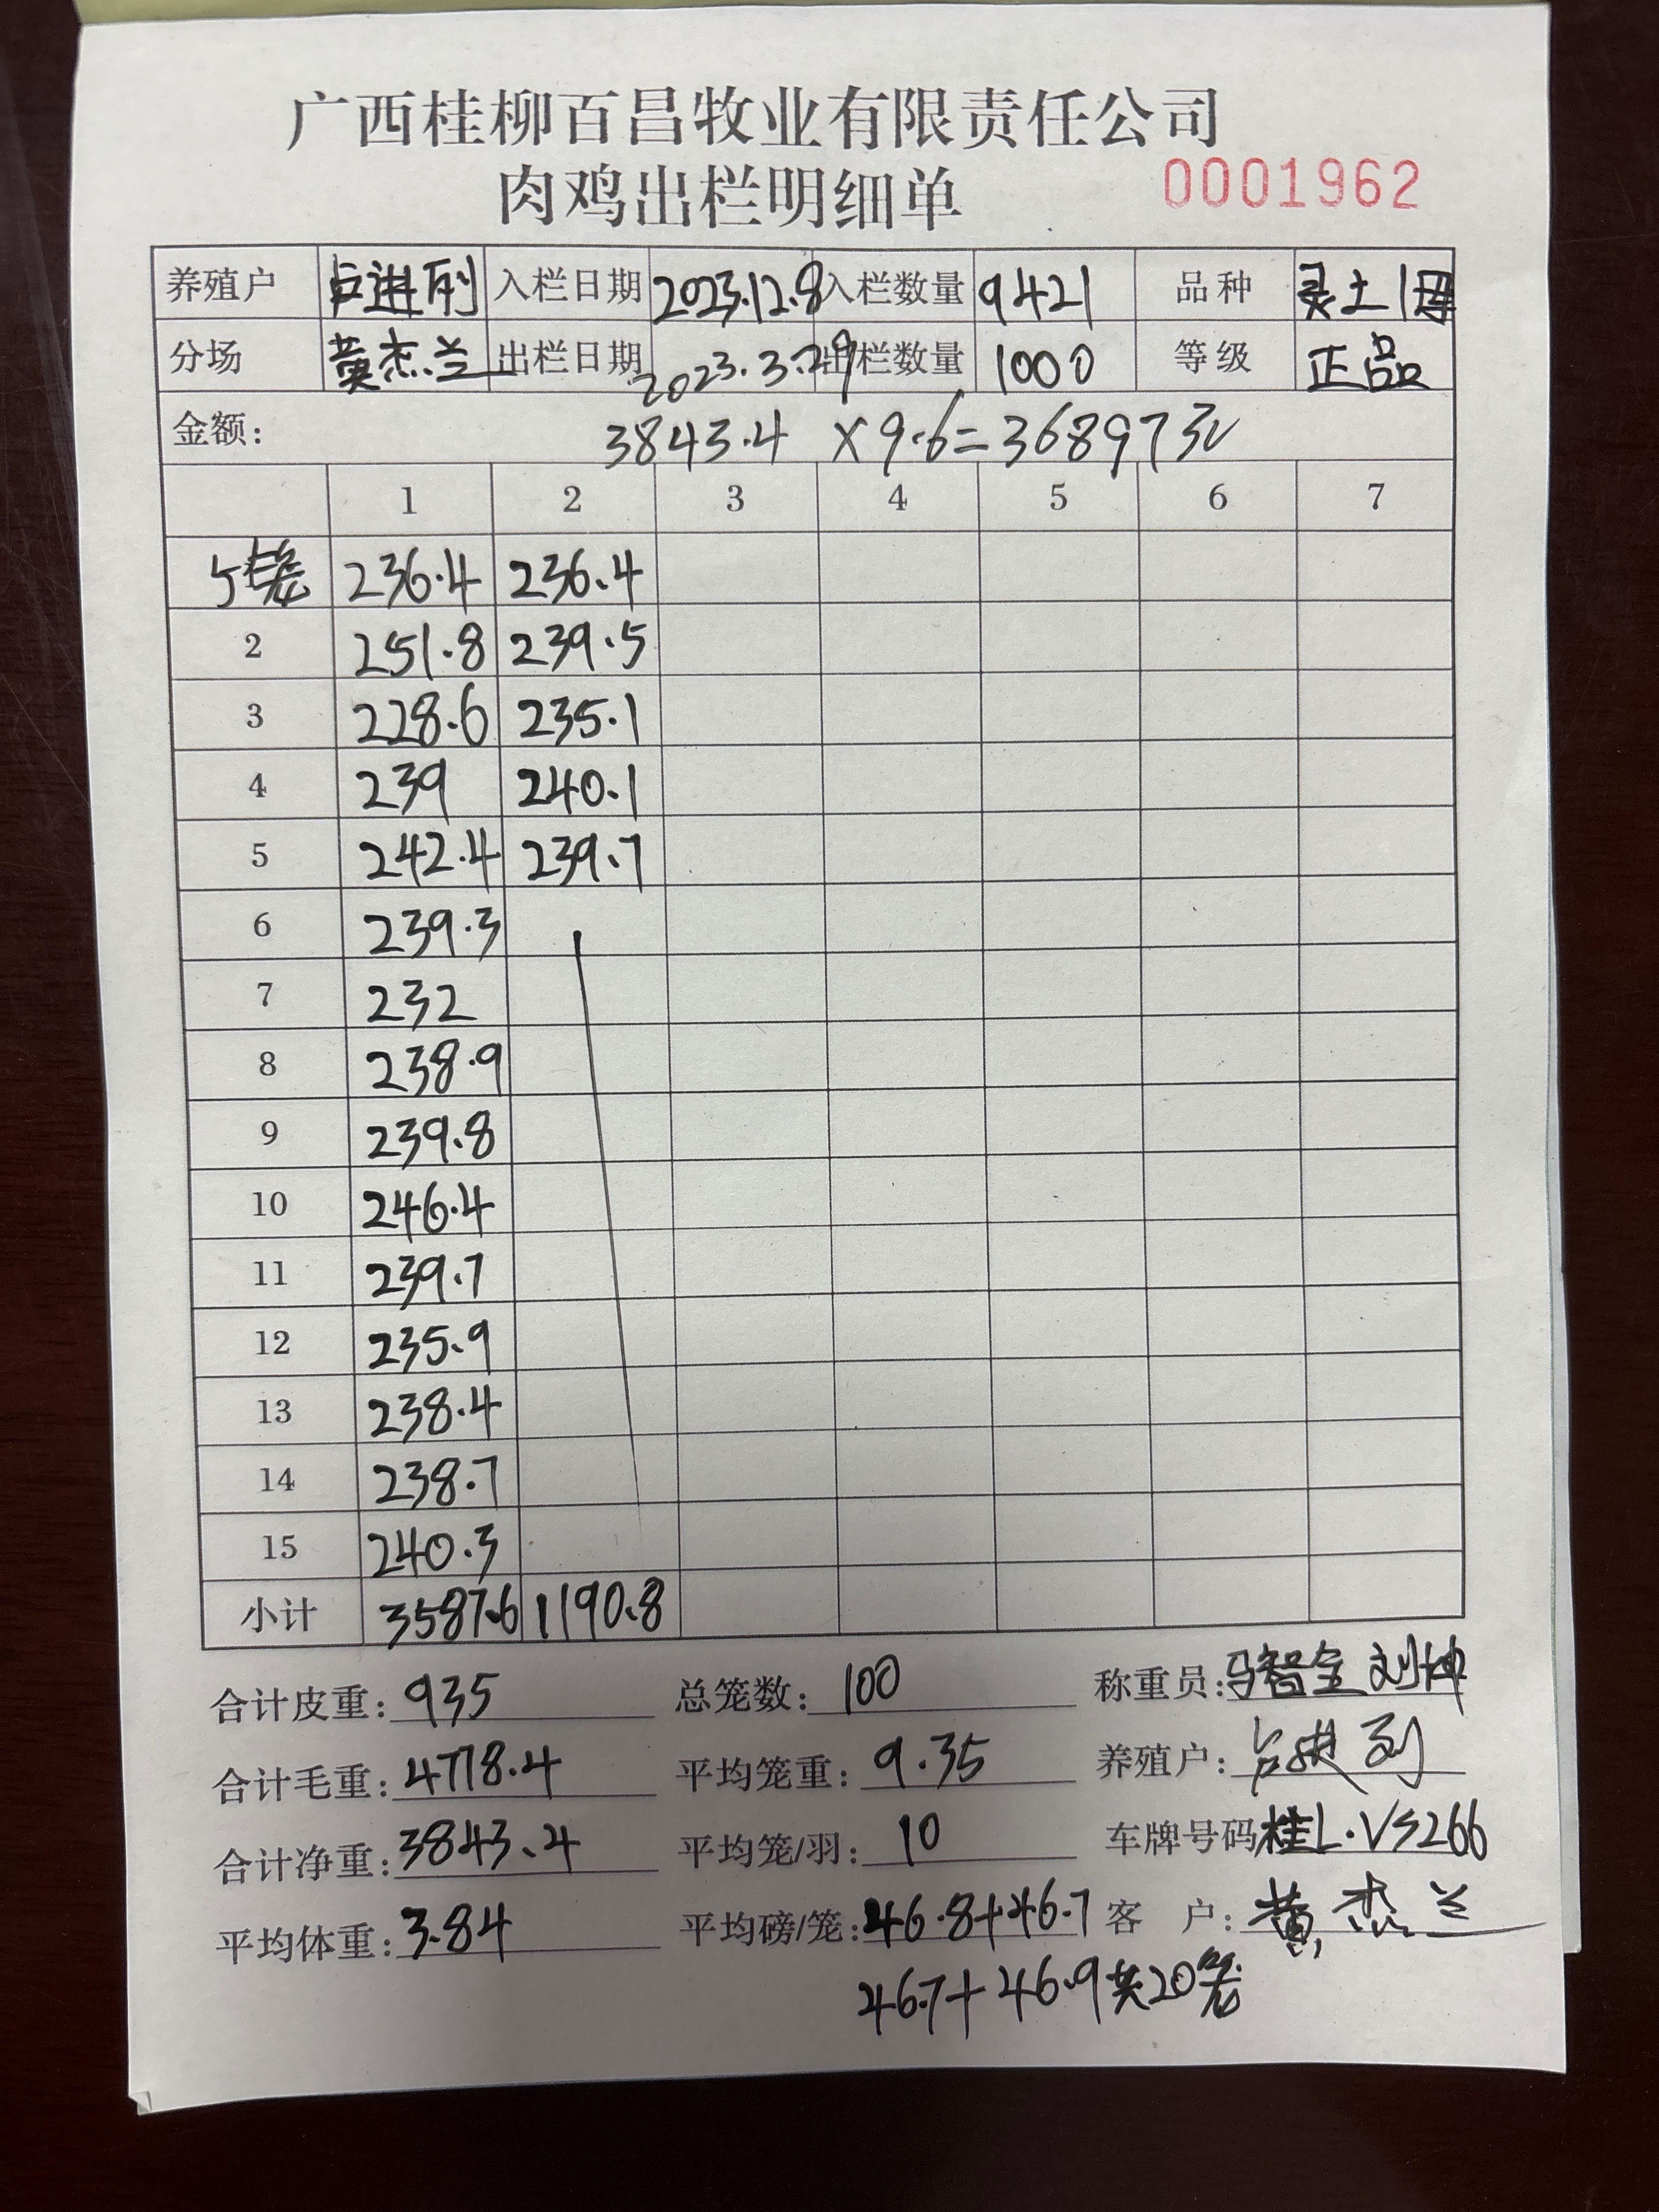 广西桂柳百昌牧业有限责任公司
肉鸡出栏明细单 0001962
养殖户 卢进刚 入栏日期 2023.12.8 入栏数量 9421 品种 灵土1母
分场 黄杰兰 出栏日期 2023.3.29 出栏数量 1000 等级 正品
金额: 3843.4 ×9.6=36897元
1 2 3 4 5 6 7
5笼 236.4 236.4
2 251.8 239.5
3 228.6 235.1
4 239 240.1
5 242.4 239.7
6 239.3
7 232
8 238.9
9 239.8
10 246.4
11 239.7
12 235.9
13 238.4
14 238.7
15 240.3
小计 3587.6 1190.8
合计皮重: 935 总笼数: 100 称重员: 马智全 刘坤
合计毛重: 4778.4 平均笼重: 9.35 养殖户:
合计净重: 3843.4 平均笼/羽: 10 车牌号码 桂L·VS266
平均体重: 3.84 平均磅/笼: 46.8+46.7 客户: 黄杰兰
46.7+46.9共20笼